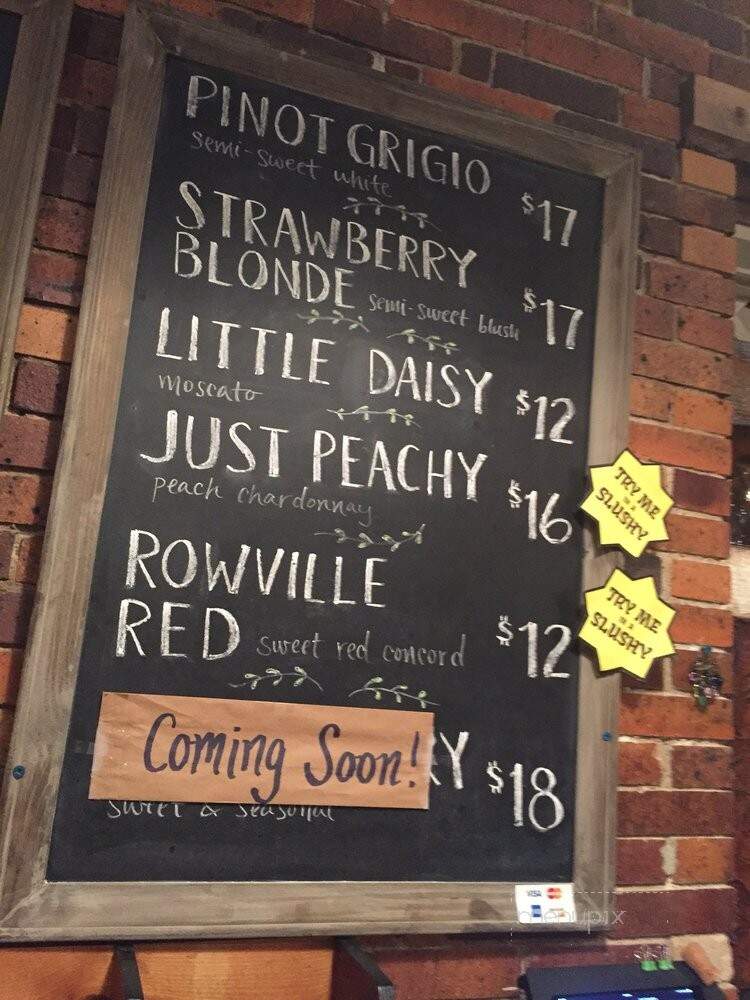 PINOT GRIGIO
semi-sweet white
$17
STRAWBERRY
BLONDE semi-sweet blush $17
LITTLE DAISY $12
moscato
JUST PEACHY $16
peach chardonnay
TRY ME
IN A
SLUSHY
ROWVILLE
RED sweet red concord $12
TRY ME
IN A
SLUSHY
Coming Soon! RY $18
sweet & seasonal
VISA
menupix